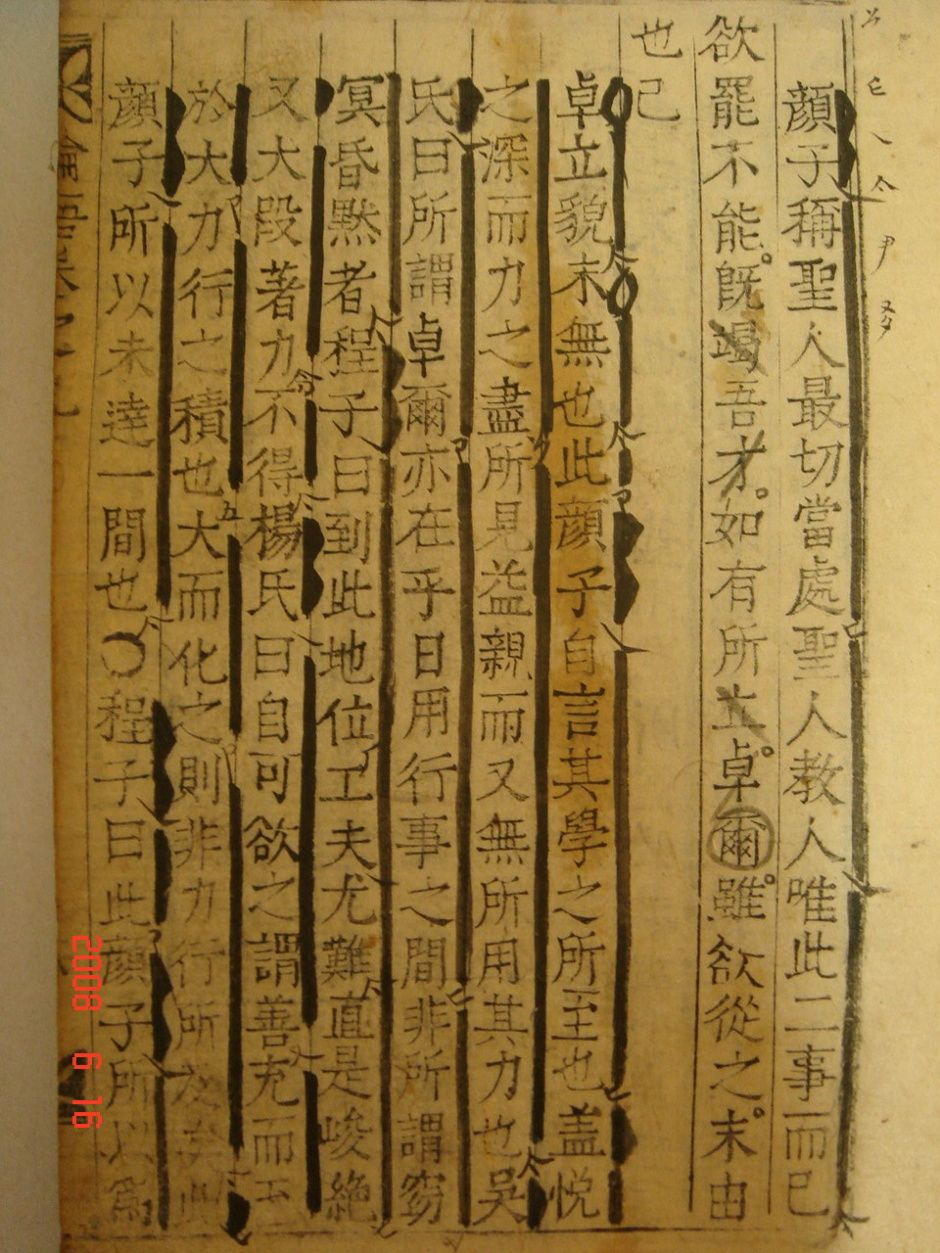 顔子稱聖人最切當處聖人教人唯此二事而已
欲罷不能旣竭吾才如有所立卓爾雖欲從之末由
也已
卓立貌末無也此顔子自言其學之所至也盖悅
之深而力之盡所見益親而又無所用其力也吳
氏曰所謂卓爾亦在乎日用行事之間非所謂窈
冥昏黙者程子曰到此地位工夫尤難直是峻絶
又大段著力不得楊氏曰自可欲之謂善充而至
於大力行之積也大而化之則非力行所及矣此
顔子所以未達一間也〇程子曰此顔子所以爲
2008 6 16